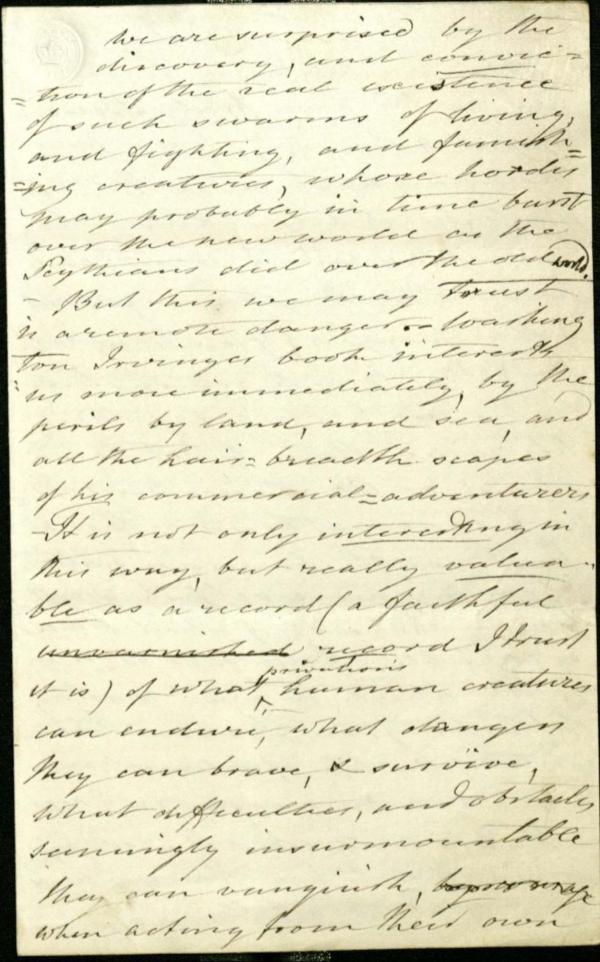 we are surprised by the
discovery, and convic=
=tion of the real existence
of such swarms of living,
and fighting, and famish=
=ing creatures, whose hordes
may probably in time burst
over the new world as the
Scythians did over the old world.
- But this we may trust
is a remote danger. - Washing
ton Irvinges book interests
us more immediately, by the
perils by land, and sea, and
all the hair=breadth scapes
of his commercial=adventurers
-It is not only interesting in
this way, but really valua-
ble as a record (a faithful
unvarnished record I trust
it is) of what privations human creatures
can endure, what dangers
they can brave, & survive,
what difficulties, and obstacles
seemingly insurmountable
they can vanquish, by courage
when acting from their own